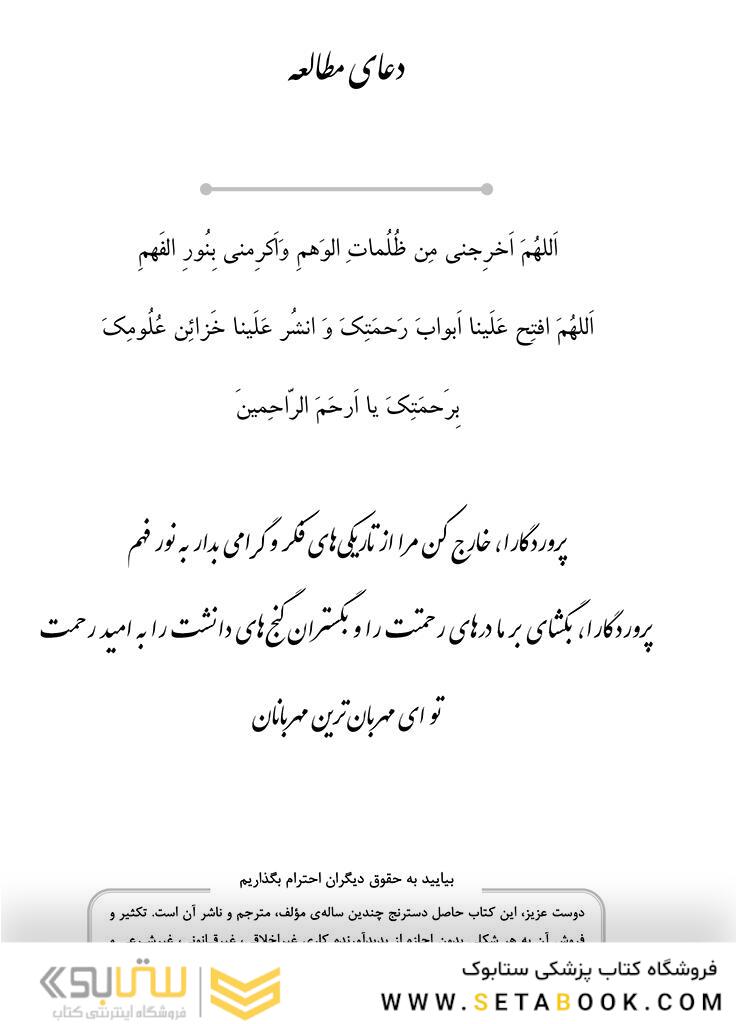 دعای مطالعه
اَللهُمَ اَخرِجنی مِن ظُلُماتِ الوَهمِ وَاَکرِمنی بِنُورِ الفَهمِ
اَللهُمَ افتِح عَلَینا اَبوابَ رَحمَتِکَ وَ انشُر عَلَینا خَزائِن عُلُومِکَ
بِرَحمَتِکَ یا اَرحَمَ الرّاحِمینَ
پروردگارا، خارج کن مرا از تاریکی‌های فکر و گرامی بدار به نور فهم
پروردگارا، بگشای بر ما درهای رحمتت را و بگستران گنج‌های دانشت را به امید رحمت
تو ای مهربان‌ترین مهربانان
بیایید به حقوق دیگران احترام بگذاریم
دوست عزیز، این کتاب حاصل دسترنج چندین ساله‌ی مؤلف، مترجم و ناشر آن است. تکثیر و
فروش آن به هر شکلی بدون اجازه از پدیدآورنده کاری غیراخلاقی، غیرقانونی، غیرشرعی و
فروشگاه کتاب پزشکی ستابوک
WWW.SETABOOK.COM
ستابوک
فروشگاه اینترنتی کتاب